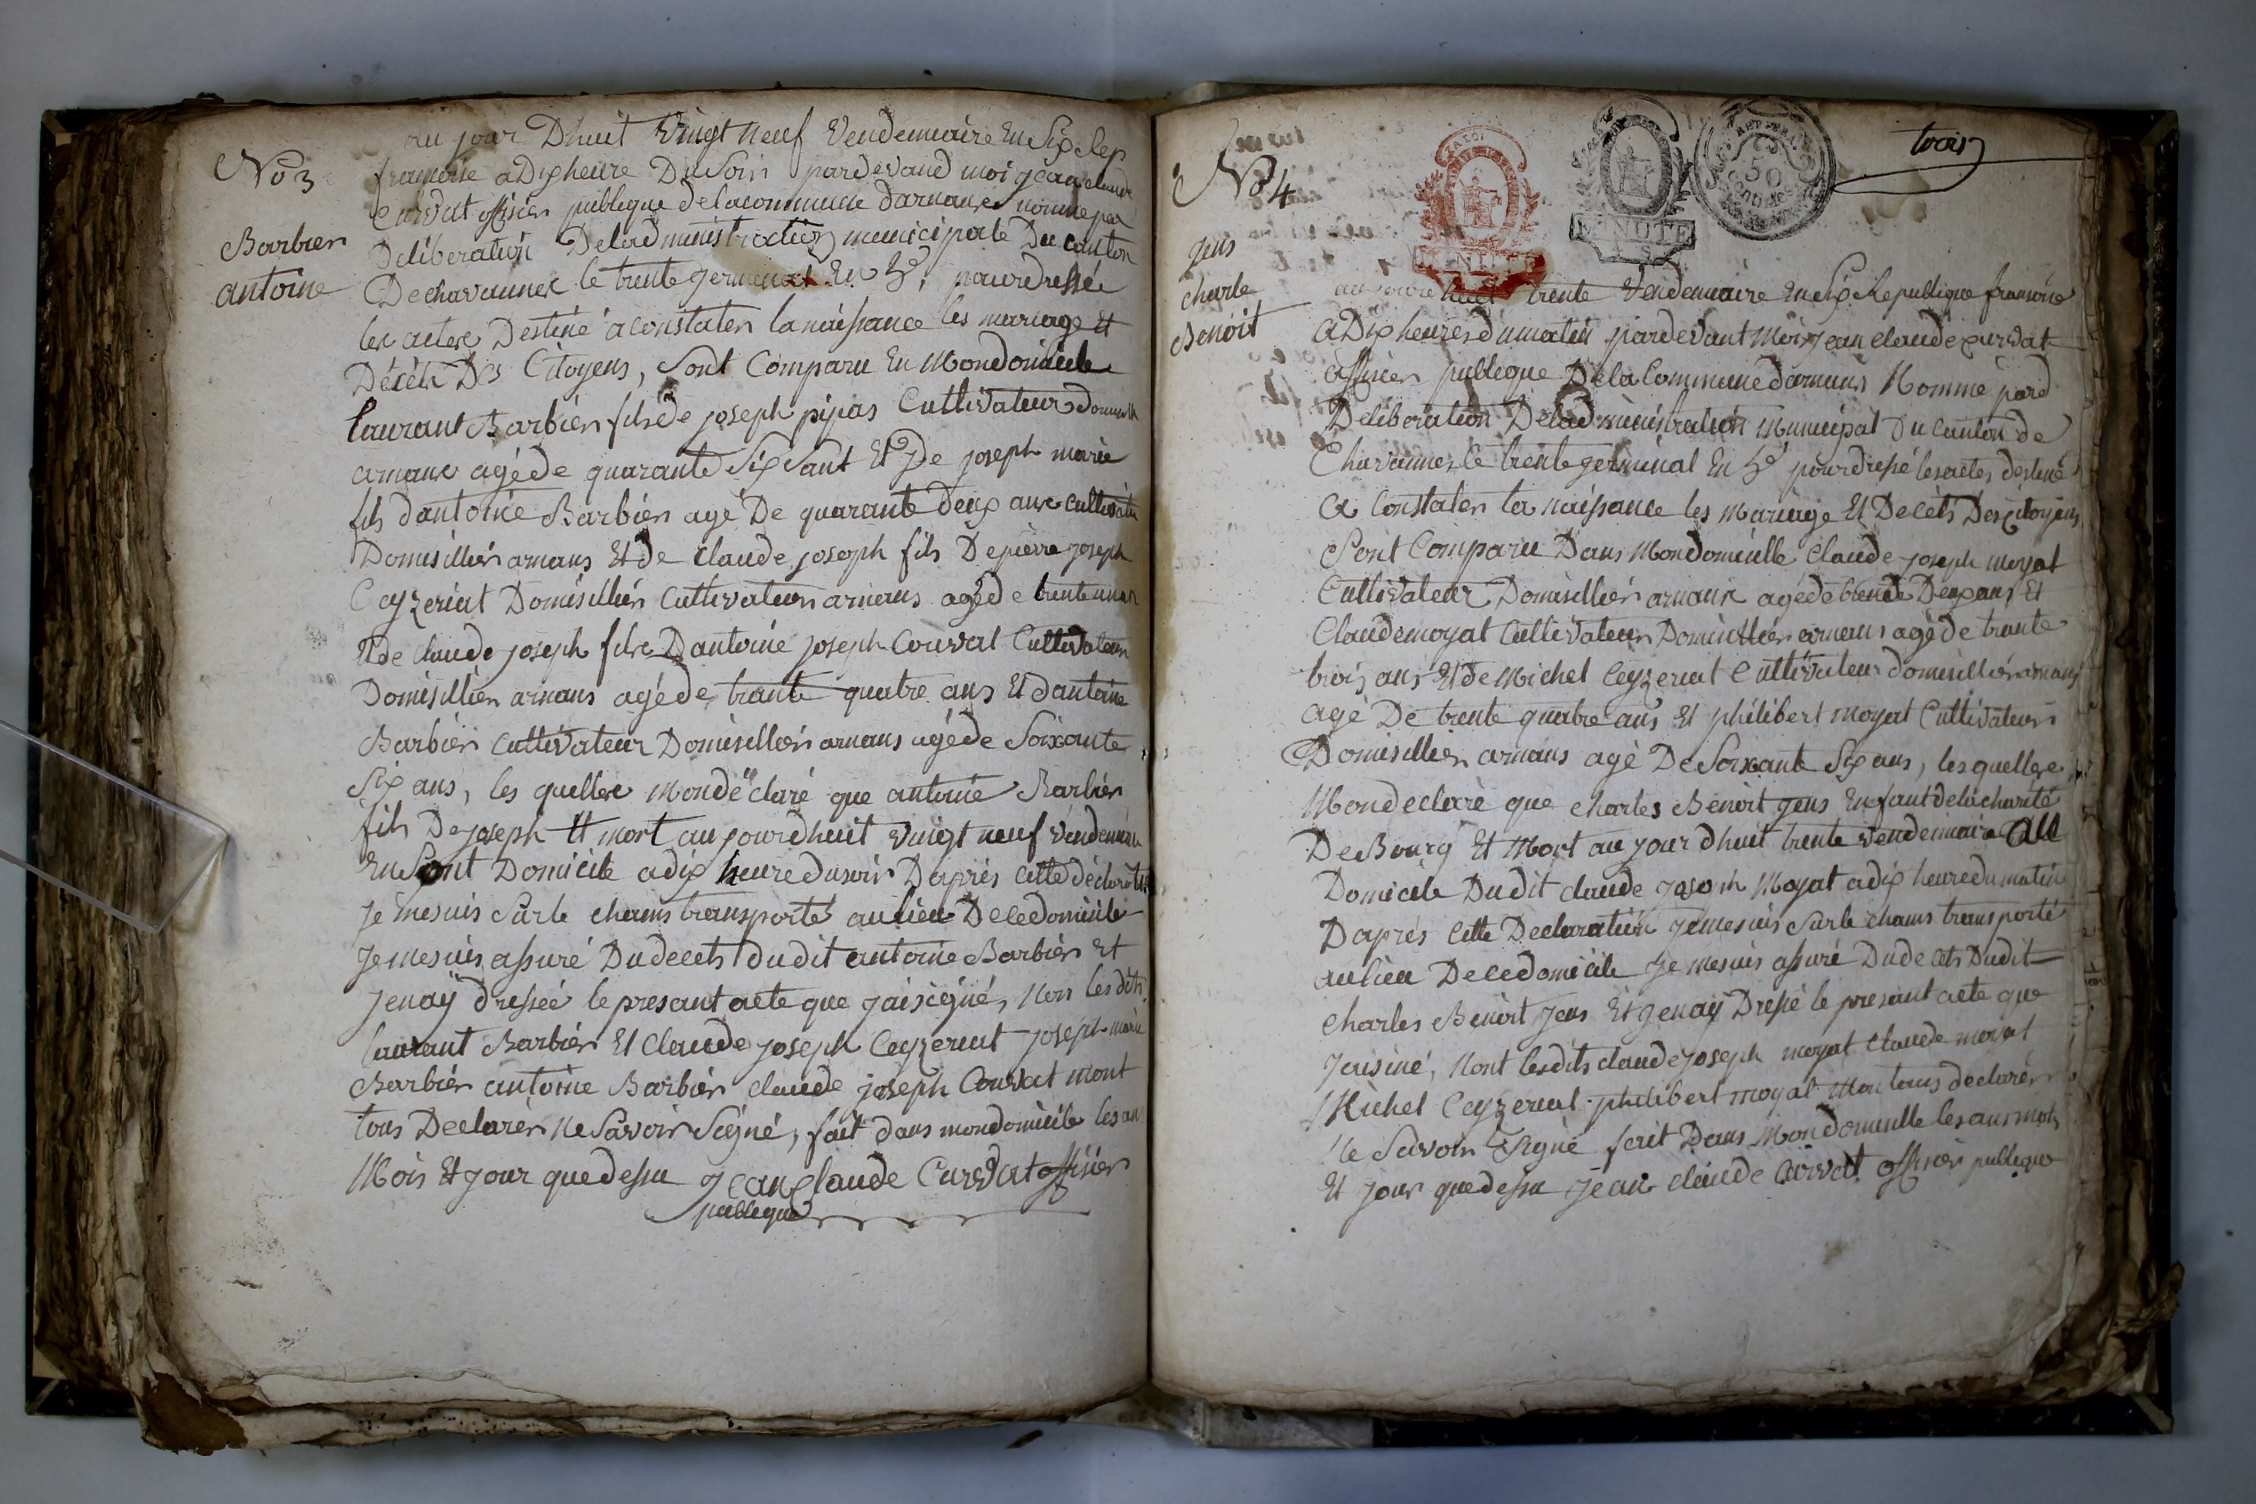 No 3
Barbier
antoine
au jour Dhuit vingt neuf vendemiaire en Six Rep
fransoise a Dix heure Du Soir pardevand moi jean claude
Curvat offisier publique de la commune darnans nomme par
Deliberation De ladministration municipale Du canton
De chavannes le trente germinal en 5e, pour dressé
les actes Destiné a constater la naissance les mariage Et
Décéts Des Citoyens, Sont Comparu En Mon domicile
laurant Barbier fils de joseph pipas Cultivateur domicill
arnans agé de quarante Six ant Et De joseph marie
fils dantoine Barbier agé De quarante Deux ans cultivate
Domisillier arnans Et de Claude joseph fils De pierre joseph
Ceyzeriat Domisillier Cultivateur arnans agé de trente un an
Et de claude joseph fils Dantoine joseph Couvat Cultivateur
Domisillier arnans agé de trante quatre ans Et dantoine
Barbier Cultivateur Domisillier arnans agé de Soixante
Six ans, les quelles Mon déclaré que antoine Barbier
fils De joseph Et mort au jourdhuit vingt neuf vendemiaire
En Sont Domicile a dix heure du soir Daprés cette déclarati
je me suis Sur le chams transporté au lieu De ce domicile
je me suis assuré Du decets du dit antoine Barbier Et
jen ay dressé le presant acte que jai signé, Non les dits
laurant Barbier Et Claude joseph Ceyzeriat joseph marie
Barbier antoine Barbier claude joseph Couvat mont
tous Declarer Ne Savoir Signé, fait dans mon domicile les an
Mois Et jour que dessu jean claude Curvat offisier
publique
trois
No 4
MINUTE
MINUTE
50
Centimes
gens
charle
Benoit
au jourdhuit trente Vendemiaire en Six Republique fransoise
a Dix heures du matin pardevant Moi jean claude curvat
offisier publique De la Commune darnans Nomme par d
Deliberation De ladministration Municipal Du canton de
Chavannes le trente germinal En 5e pour dressé les actes destiné
a Constater la naissance les Mariage Et Decéts Des Citoyens
Sont Comparu Dans Mon domicille Claude joseph moyat
Cultivateur Domisillier arnans agé de trente Deux ans Et
Claude moyat Cultivateur Domisillier arnans agé de trante
trois ans Et de Michel Ceyzeriat Cultivateur domisillier arnans
agé De trente quatre ans Et philibert moyat Cultivateur
Domisillier arnans agé De Soixante Six ans, les quelles
Mon declaré que charles Benoit gens Enfant de la charité
De Bourg Et Mort au jour dhuit trente vendemiaire au
Domicile Du dit claude joseph Moyat a dix heure du matin
Daprés cette Declaration je me suis Sur le chams transporté
au lieu De ce domicile je me suis assuré Du decets Dudit
charles Benoit gens Et jen ay Dressé le presant acte que
jai siné, Nont les dits claude joseph moyat claude moyat
Michel Ceyzeriat philibert moyat Mon tous declarér
Ne Savoir Signé fait Dans Mon domicille les ans mois
Et jour que dessu jean claude Curvat offisier publique